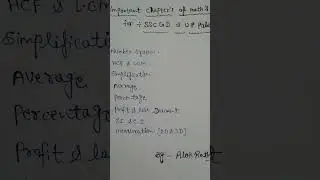 Important Chapter's of math's
for :- SSC GD & UP Police
Number System
HCF & LCM
Simplification
Average
Percentage
Profit & loss Discount
SI & C I
mensuration [2D & 3D]
By -
HCF & L.C.M
Simplification
Average
Percentage
Profit & lo